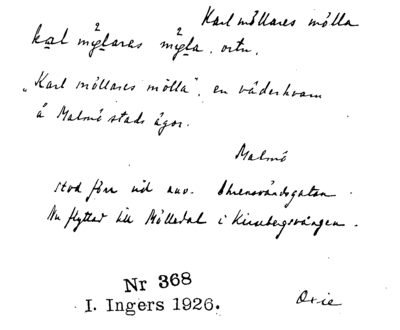 Karl möllares mölla
kal mylares myla. ortn.
"Karl möllares mölla", en väderkvarn
å Malmö stads ägor.
Malmö
stod förr vid nuv. Ehrensvärdsgatan.
Nu flyttad till Mölledal i Kirsebergsvången.
Nr 368
I. Ingers 1926.
Oxie